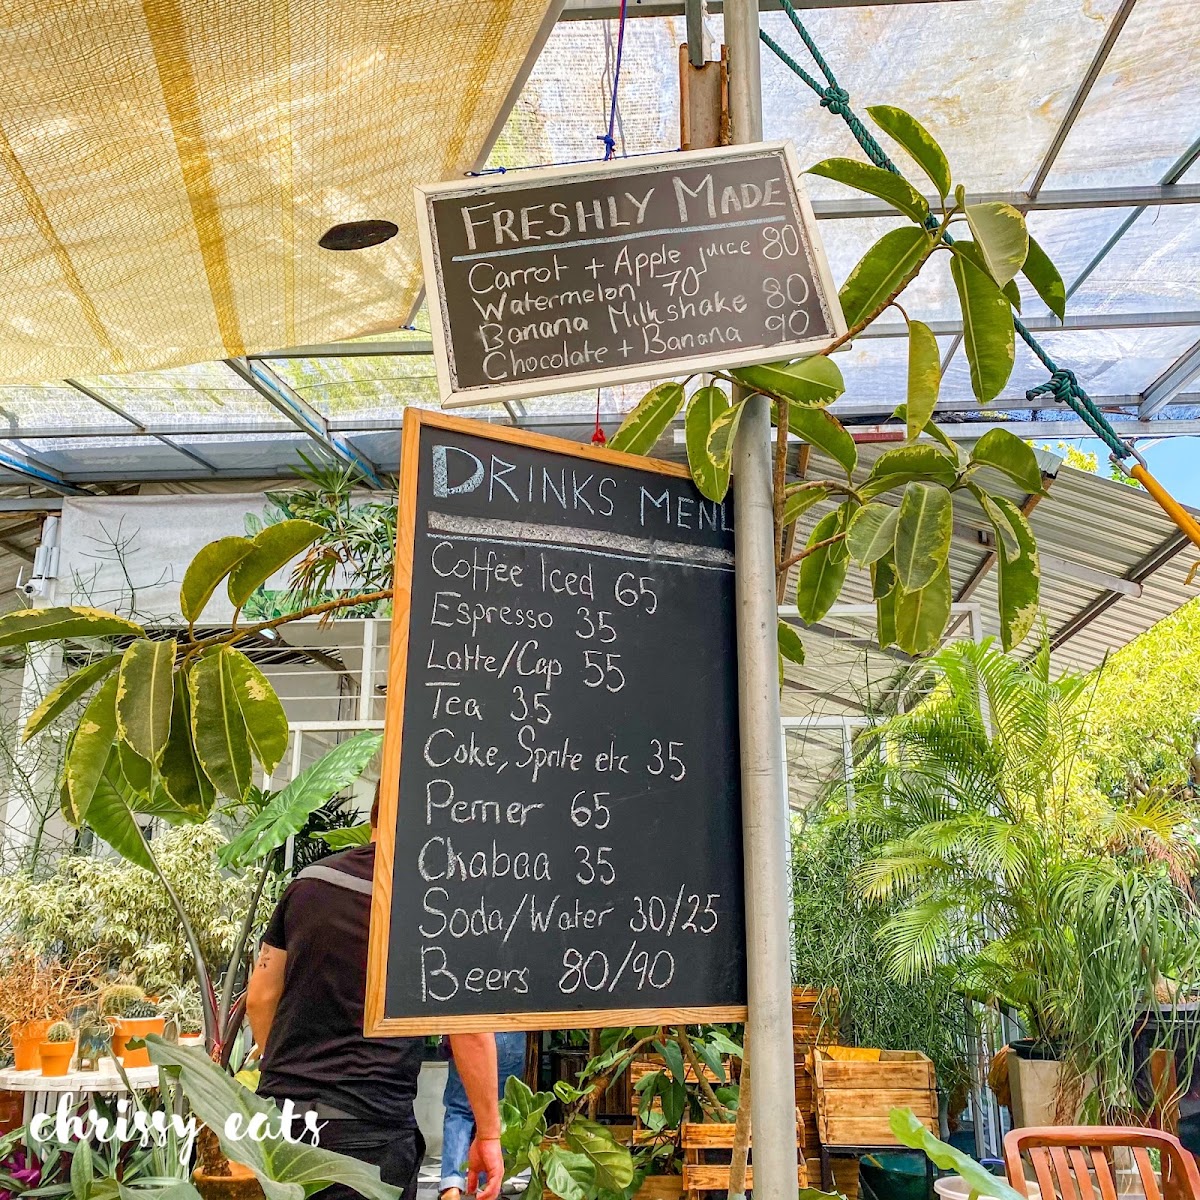 FRESHLY MADE
Carrot + Apple juice 80
Watermelon 70
Banana Milkshake 80
Chocolate + Banana 90
DRINKS MENU
Coffee Iced 65
Espresso 35
Latte/Cap 55
Tea 35
Coke, Sprite etc 35
Perrier 65
Chabaa 35
Soda/Water 30/25
Beers 80/90
chrissy eats